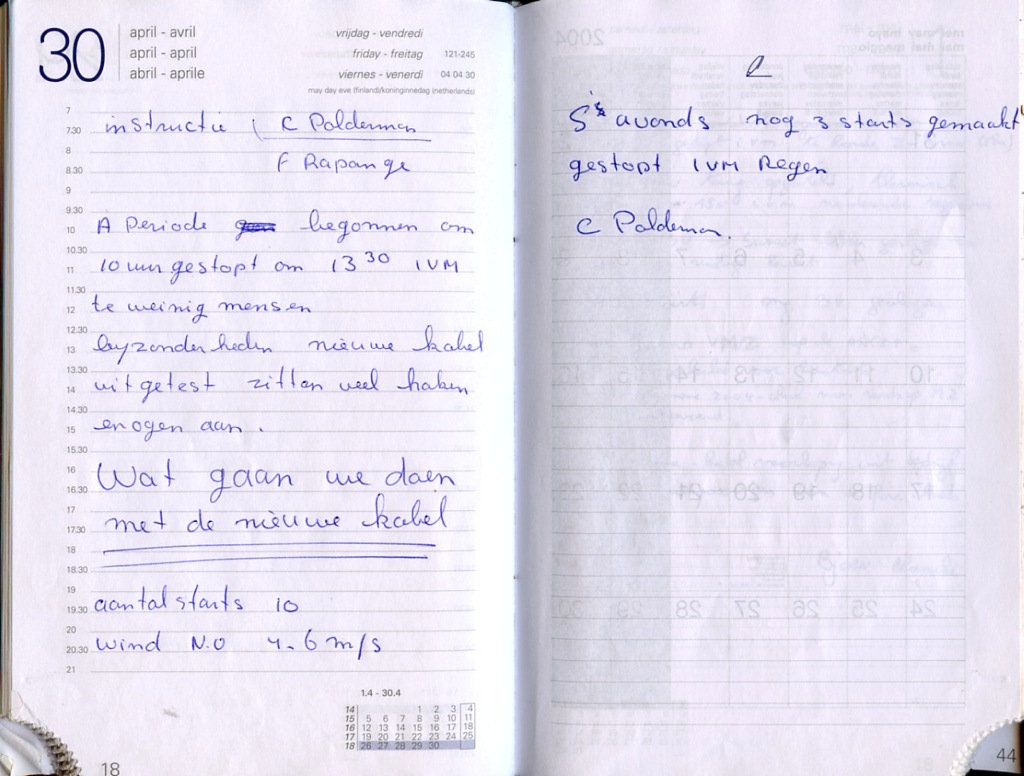 30
april - avril
april - april
abril - aprile
vrijdag - vendredi
friday - freitag 121-245
viernes - venerdi 04 04 30
may day eve (finland)/koninginnedag (netherlands)
7
7.30 instructie ( C Polderman
8
8.30 F Rapange
9
9.30
10 A Periode begonnen om
10.30
11 10 uur gestopt om 13 30 IVM
11.30
12 te weinig mensen
12.30
13 byzonderheden nieuwe kabel
13.30
14 uitgetest zitten veel haken
14.30
15 en ogen aan.
15.30
16 Wat gaan we doen
16.30
17 met de nieuwe kabel
17.30
18
18.30
19
19.30 aantal starts 10
20
20.30 wind N.O 4-6 m/s
21
1.4 - 30.4
14 1 2 3 4
15 5 6 7 8 9 10 11
16 12 13 14 15 16 17 18
17 19 20 21 22 23 24 25
18 26 27 28 29 30
18
S's avonds nog 3 starts gemaakt
gestopt IVM Regen
C Polderman.
44